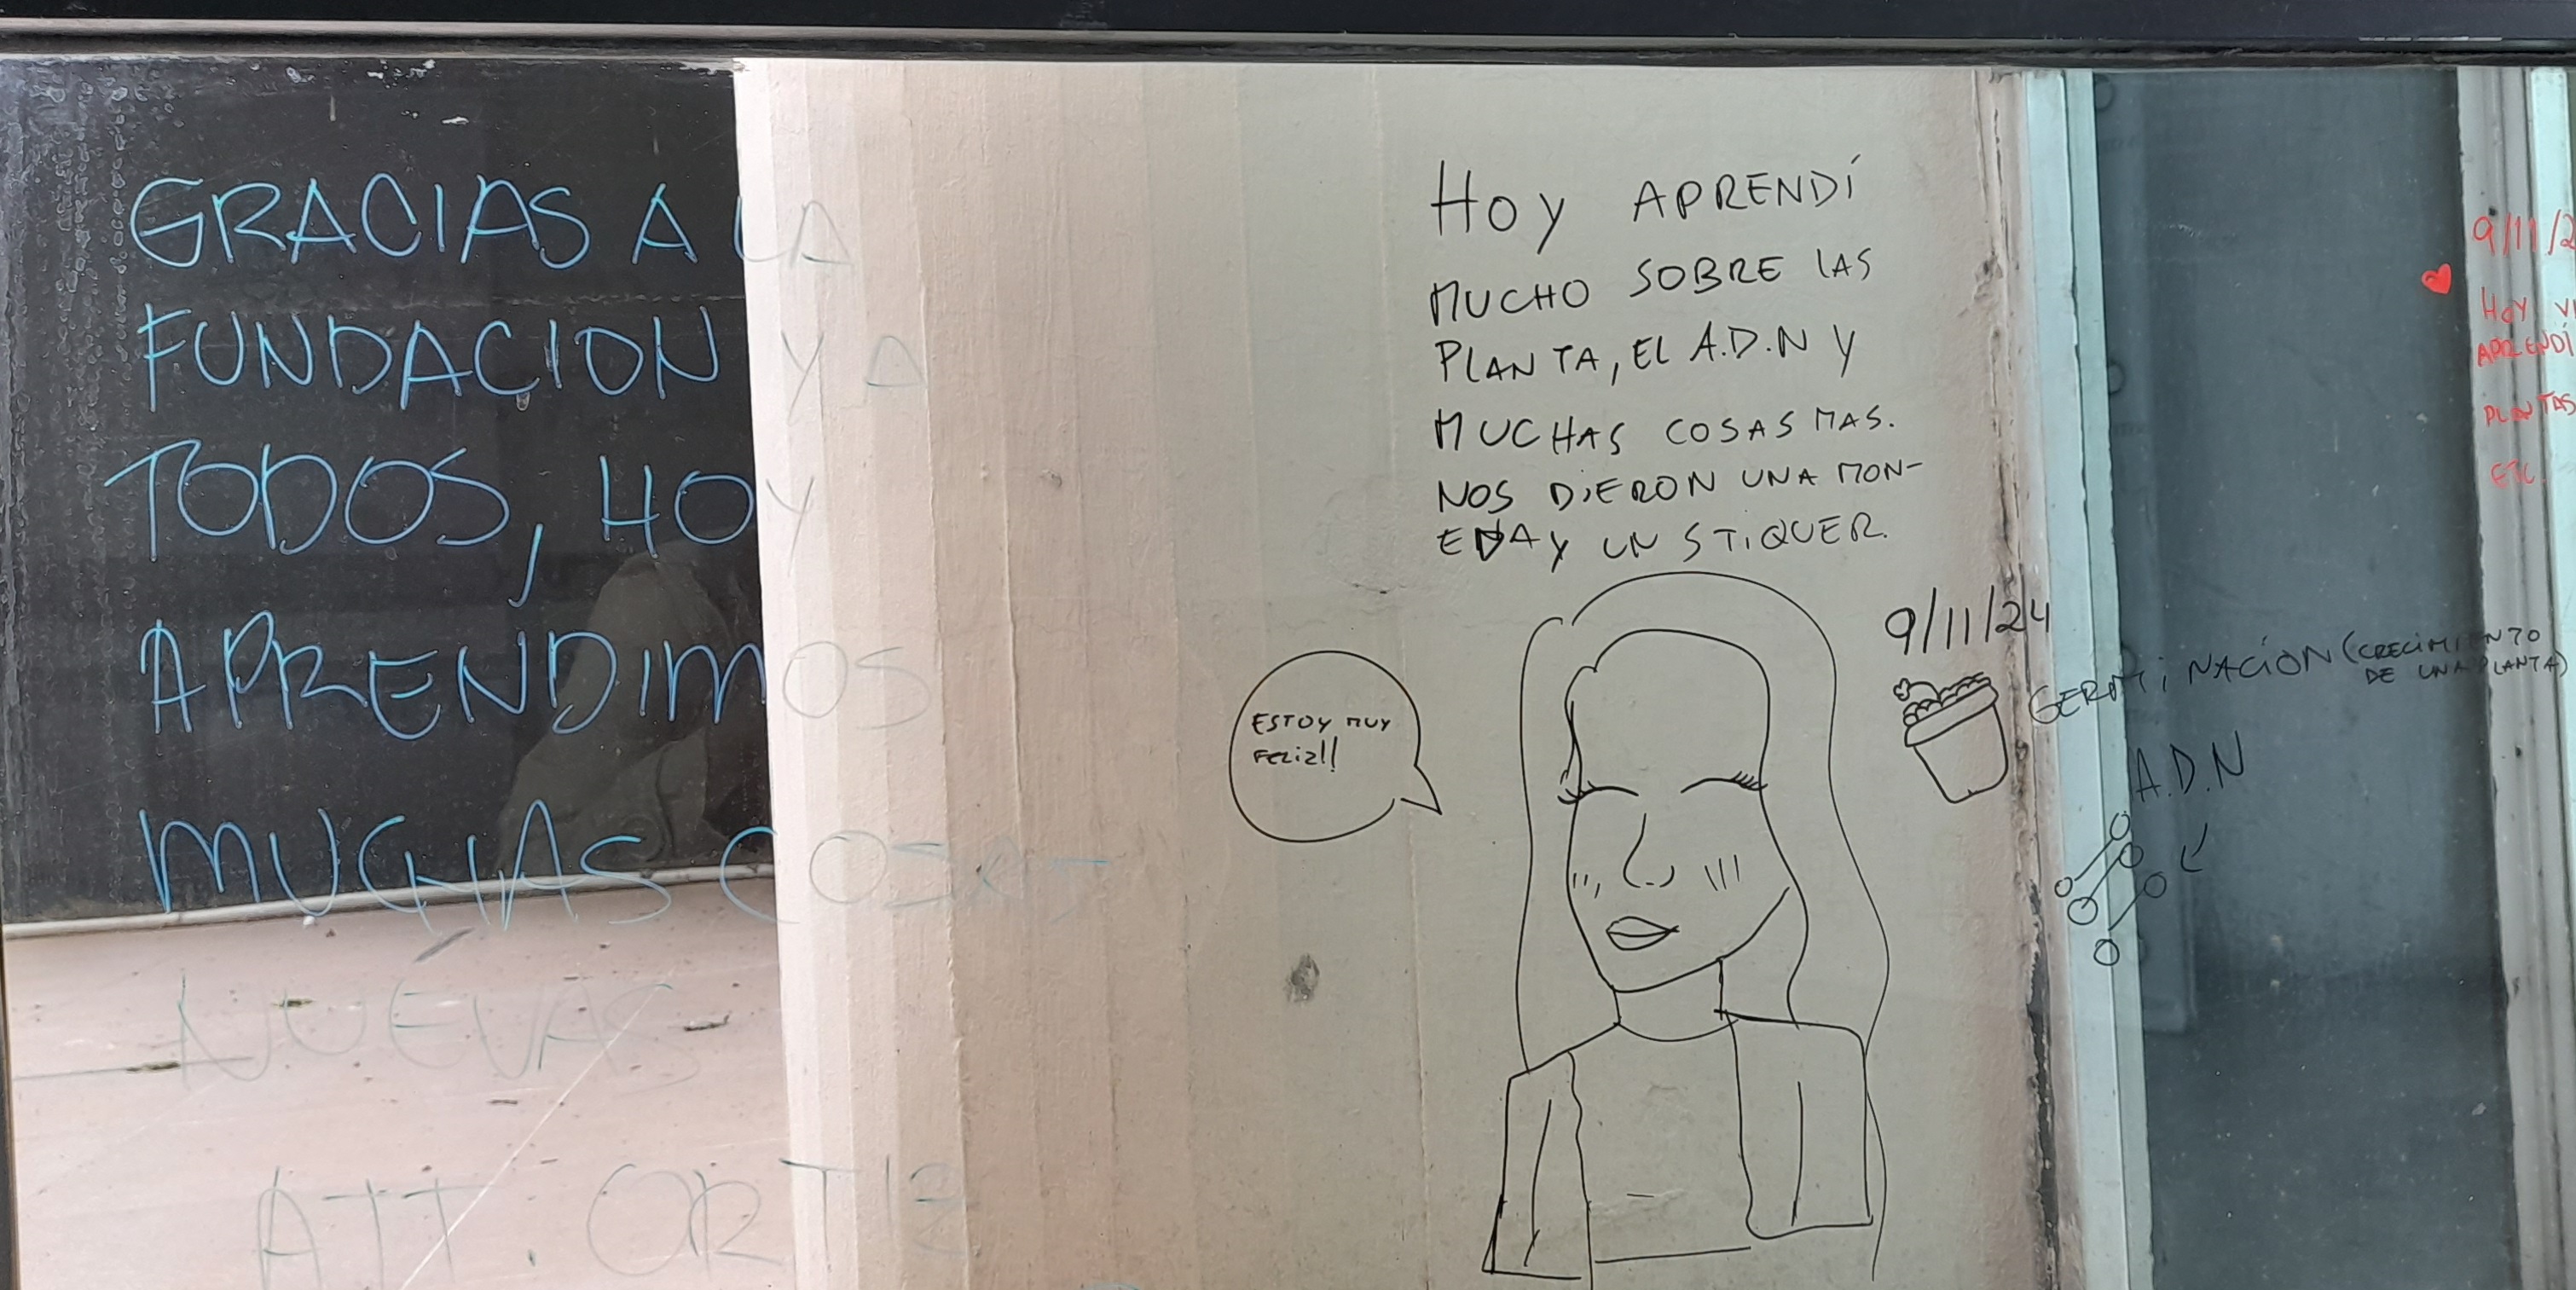 GRACIAS A LA
FUNDACION Y A
TODOS, HOY
APRENDIMOS
MUCHAS COSAS
NUEVAS
ATT. ORTIZ
HOY APRENDÍ
MUCHO SOBRE LAS
PLANTA, EL A.D.N Y
MUCHAS COSAS MAS.
NOS DIERON UNA MON-
EDA Y UN STIQUER.
ESTOY MUY
FELIZ!!
9/11/24
GERMINACIÓN (CRECIMIENTO
DE UNA PLANTA)
A.D.N
9/11/2
HOY VI
APRENDÍ
PLANTAS
ETC.